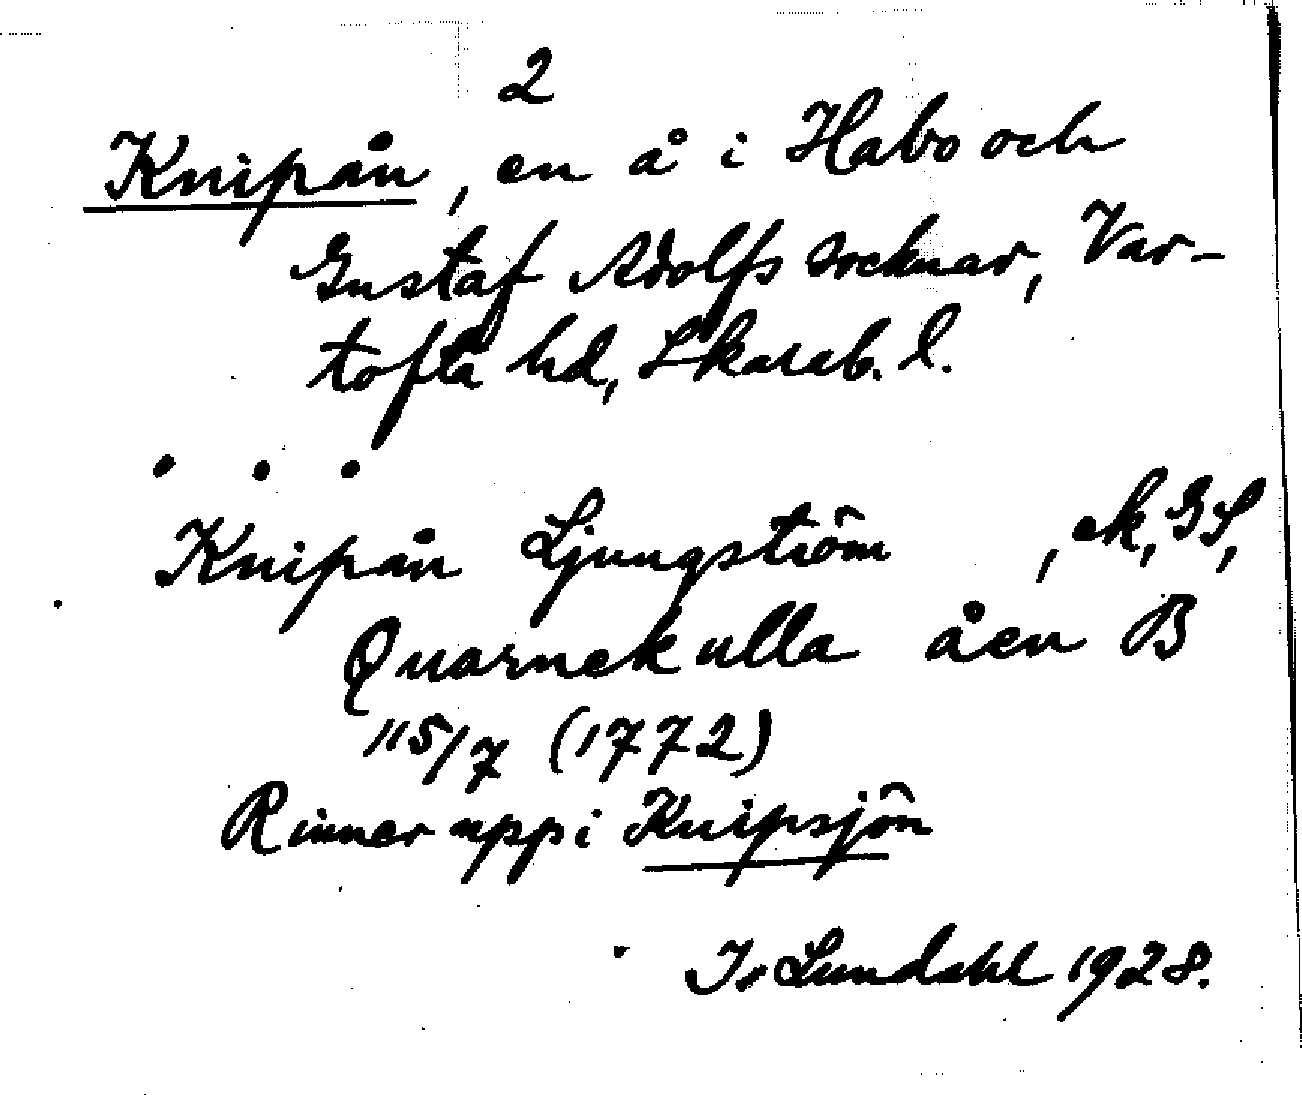 2
Knipån, en å i Habo och
Gustaf Adolfs socknar, Var-
tofta hd, Skarab. l.
. . .
Knipån Ljungström , ek, GS,
Quarnekulla åen B
115/7 (1772)
Rinner upp i Knipsjön
Ir Lundahl 1928.